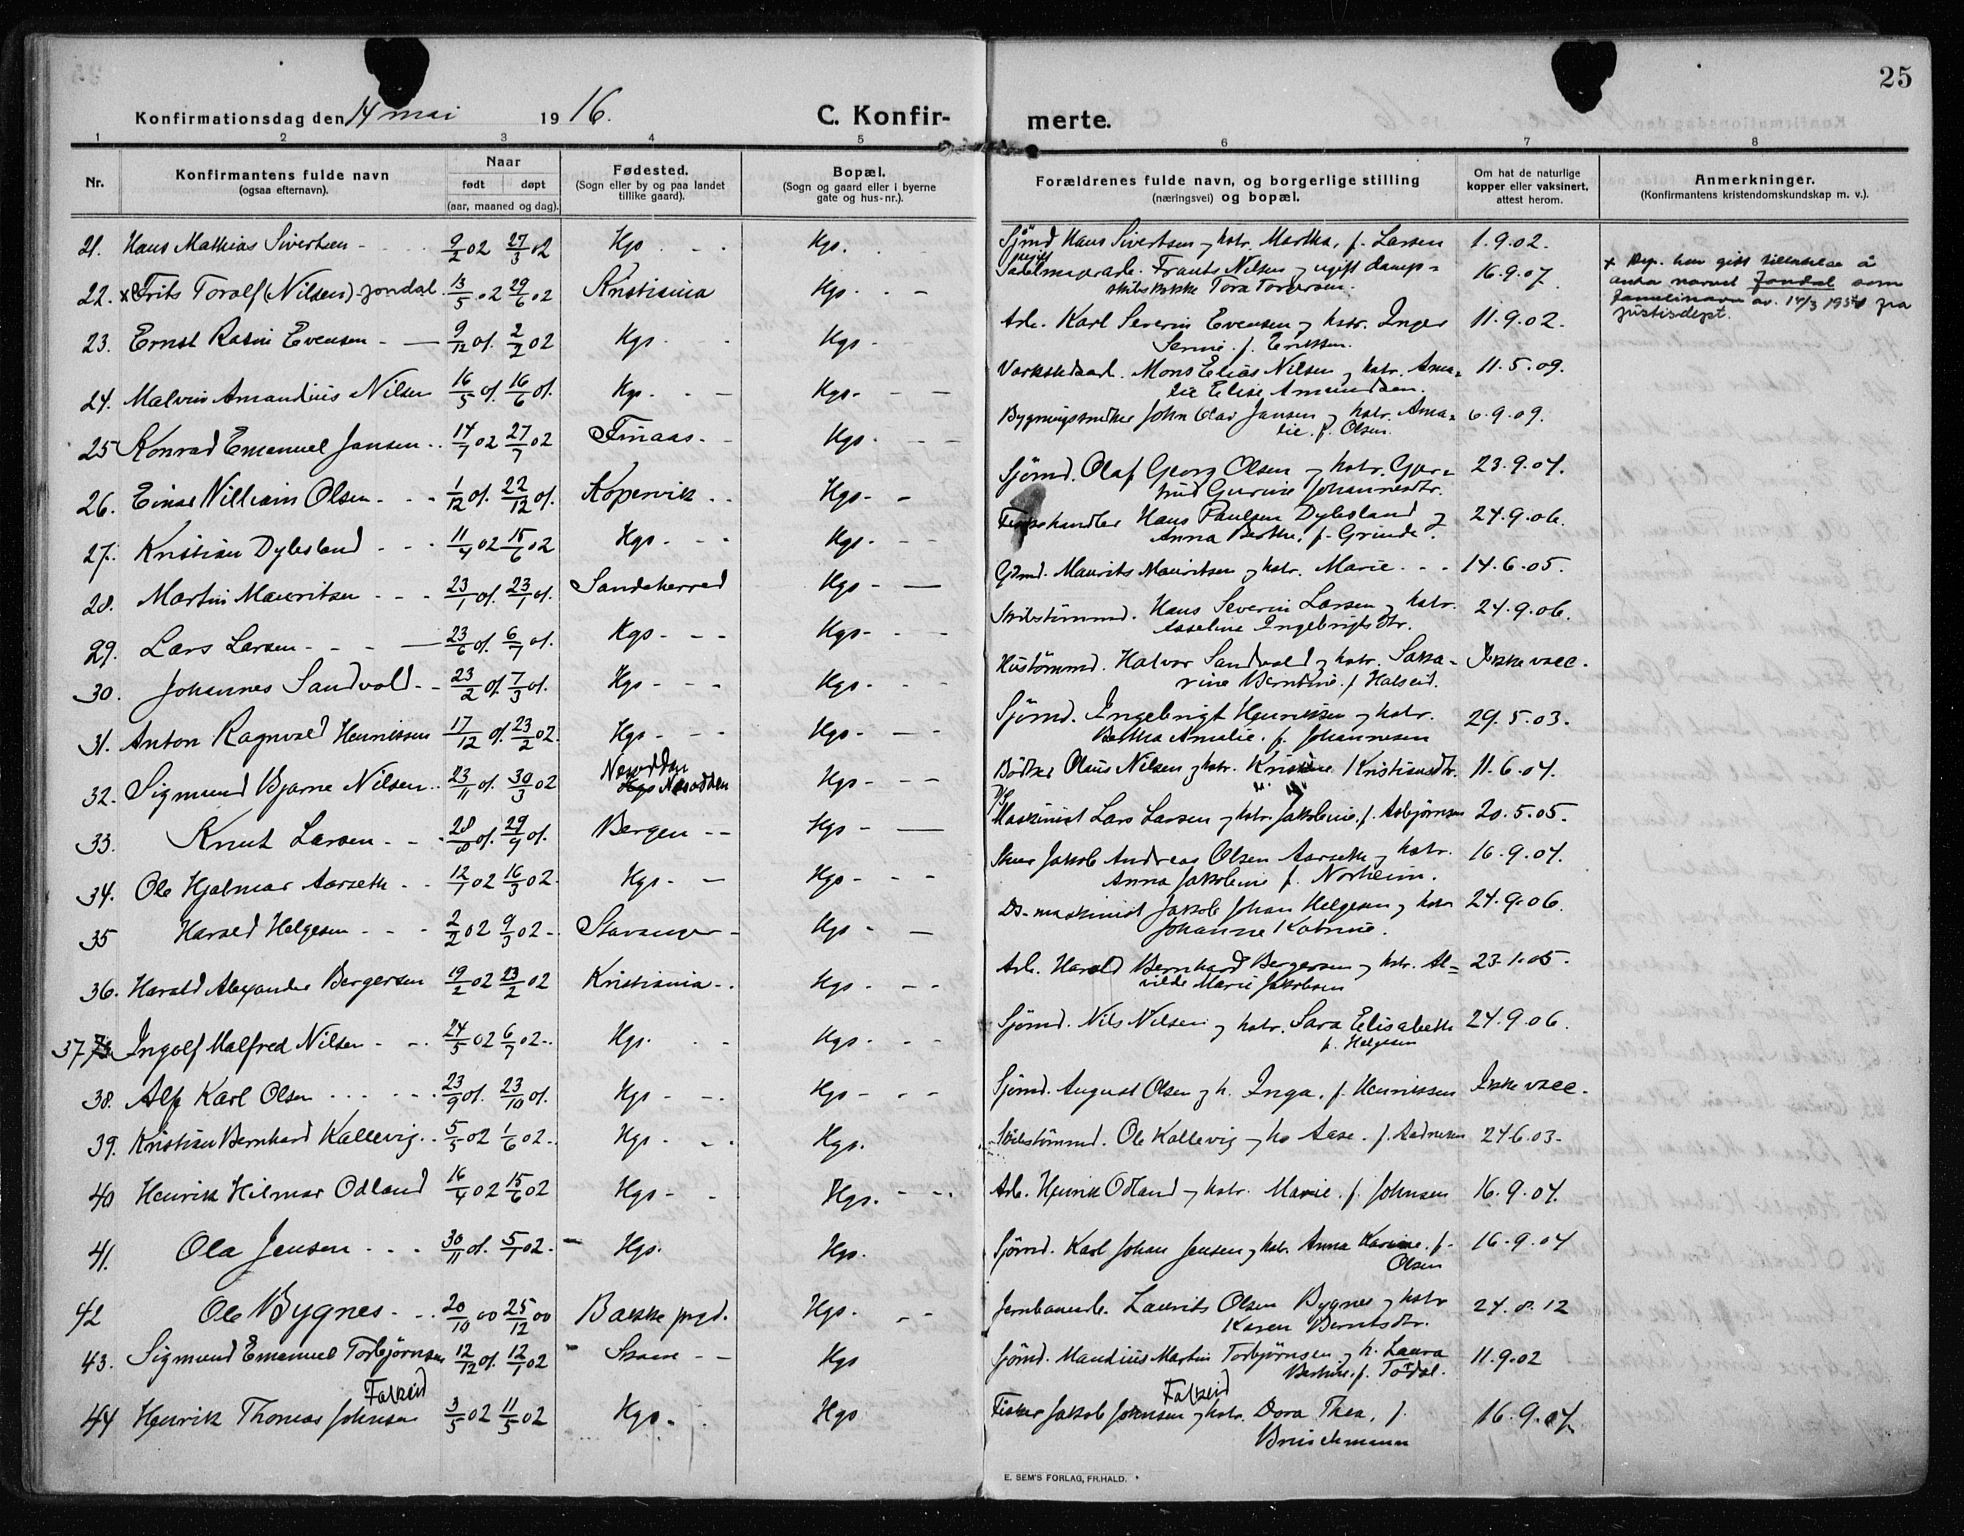 25
Konfirmationsdag den 14 mai 1916.
C. Konfir-
merte.
1 2 3 4 5 6 7 8
Nr. Konfirmantens fulde navn (ogsaa efternavn). Naar født døpt (aar, maaned og dag). Fødested. (Sogn eller by og paa landet tillike gaard). Bopæl. (Sogn og gaard eller i byerne gate og hus-nr.). Forældrenes fulde navn, og borgerlige stilling (næringsvei) og bopæl. Om hat de naturlige kopper eller vaksinert, attest herom. Anmerkninger. (Konfirmantens kristendomskundskap m. v.).
21. Hans Mathias Sivertsen 9/2 02 27/3 02 Hgs. Hgs. Sjømd Hans Sivertsen og hstr. Martha, f. Larsen 1.9.02.
22. x Frits Toralf (Nilsen) Jondal 13/5 02 29/6 02 Kristiania Hgs. ugift Sadelmagerarb. Frants Nilsen og ugift damp=
skibskokke Tora Torgersen. 16.9.07
x Dep. har gitt tillatelse å
anta navnet Jondal som
familienavn av. 14/3 1934 fra
justisdept.
23. Ernst Rasin Evensen 9/12 01. 2/2 02 Hgs. Hgs. Arb. Karl Severin Evensen og hstr. Inger
Serine f. Eriksen. 11.9.02.
24. Malvin Amandius Nilsen 16/5 01. 16/6 01. Hgs. Hgs. Mons Elias Nilsen og hstr. Ama=
lie Elise Amundsen. 11.5.09.
25 Konrad Emanuel Jansen 14/7 02 27/7 02 Finaas Hgs. Bygningssnekker John Olai Jansen og hstr. Ama=
lie f. Olsen. 6.9.09.
26. Einar William Olsen 1/12 01. 22/12 01. Kopervik Hgs. Sjømd. Olaf Georg Olsen og hstr. Gjer=
trud Gurine Johannesdtr. 23.9.07.
27. Kristian Dybesland 11/4 02 15/6 02 Hgs. Hgs. Hans Paulsen Dybesland og
Anna Berthe, f. Grinde. 24.9.06.
28. Martin Mauritsen 23/1 01. 23/1 01. Sandeherred Hgs. Maurits Mauritsen og hstr. Marie 14.6.05.
29. Lars Larsen 23/6 01. 6/7 01. Hgs. Hgs. Skibstømmd. Hans Severin Larsen og hstr.
Asseline Engebrigtsdtr. 24.9.06.
30. Johannes Sandvold 23/2 01. 7/3 01. Hgs. Hgs. Hustømmd. Halvor Sandvold og hstr. Saka=
rine Berntine f. Halseid. Ikke vacc.
31. Anton Ragnvald Henriksen 17/12 01. 23/2 02. Hgs. Hgs. Sjømd. Ingebrigt Henriksen og hstr.
Bertha Amalie. f. Johannesen 29.5.03.
32. Sigmund Bjarne Nilsen 23/11 01. 30/3 02 Nesodden Hgs Nesodden Hgs. Bødker Olaus Nilsen og hstr. Kristine Kristiansdtr. 11.6.04.
33. Knut Larsen 28/8 01. 29/9 01. Bergen Hgs. Maskinist Lars Larsen og hstr. Jakobine, f. Asbjørnsen 20.5.05.
34. Ole Hjalmar Aarseth 12/1 02 16/3 02. Hgs. Hgs. Jakob Andreas Olsen Aarseth og hstr.
Anna Jakobine f. Norheim. 16.9.07.
35 Harald Helgesen 2/2 02 9/3 02 Stavanger Hgs. Ds-maskinist Jakob Johan Helgesen og hstr
Johanne Katrine. 24.9.06.
36. Harald Alexander Bergersen 19/2 02 23/2 02 Kristiania Hgs. Arb. Harald Bernhard Bergersen og hstr. Al=
vilde Marie Jakobsen 23.1.05.
37 Ingolf Malfred Nilsen 24/5 02 6/7 02. Hgs. Hgs. Sjømd. Nils Nilsen og hstr. Sara Elisabeth
f. Helgesen 24.9.06.
38. Alf Karl Olsen 23/9 01. 23/10 01. Hgs. Hgs. Sjømd. August Olsen og h. Inga, f. Henriksen Ikke vacc.
39. Kristian Bernhard Kallevig 5/5 02 1/6 02. Hgs. Hgs. Skibstømmd. Ole Kallevig og hs Aase. f. Aadnesen 24.6.03.
40 Henrik Hilmar Odland 16/4 02 15/6 02 Hgs. Hgs. Arb. Henrik Odland og hstr. Marie. f. Johnsen 16.9.07.
41. Ola Jensen 30/11 01. 5/1 02. Hgs. Hgs. Sjømd. Karl Johan Jensen og hstr. Anna Karine. f.
Olsen 16.9.07
42 Ole Bygnes 20/10 00 25/12 00 Bakke prgd. Hgs. Jernbanearb. Laurits Olsen Bygnes og hstr
Karen Berntsdtr. 24.8.12
43. Sigmund Emanuel Torbjørnsen 12/12 01. 12/1 02 Skaare Hgs Sjømd. Mandius Martin Torbjørnsen og h. Laura
Bertine, f. Tordal. 11.9.02
44 Henrik Thomas Johnsen Falkeid 3/5 02 11/5 02 Hgs. Hgs Fisker Jakob Johnsen Falkeid og hstr. Dora Thea, f.
Brüschmann 16.9.07.
E. SEM'S FORLAG, FR.HALD.